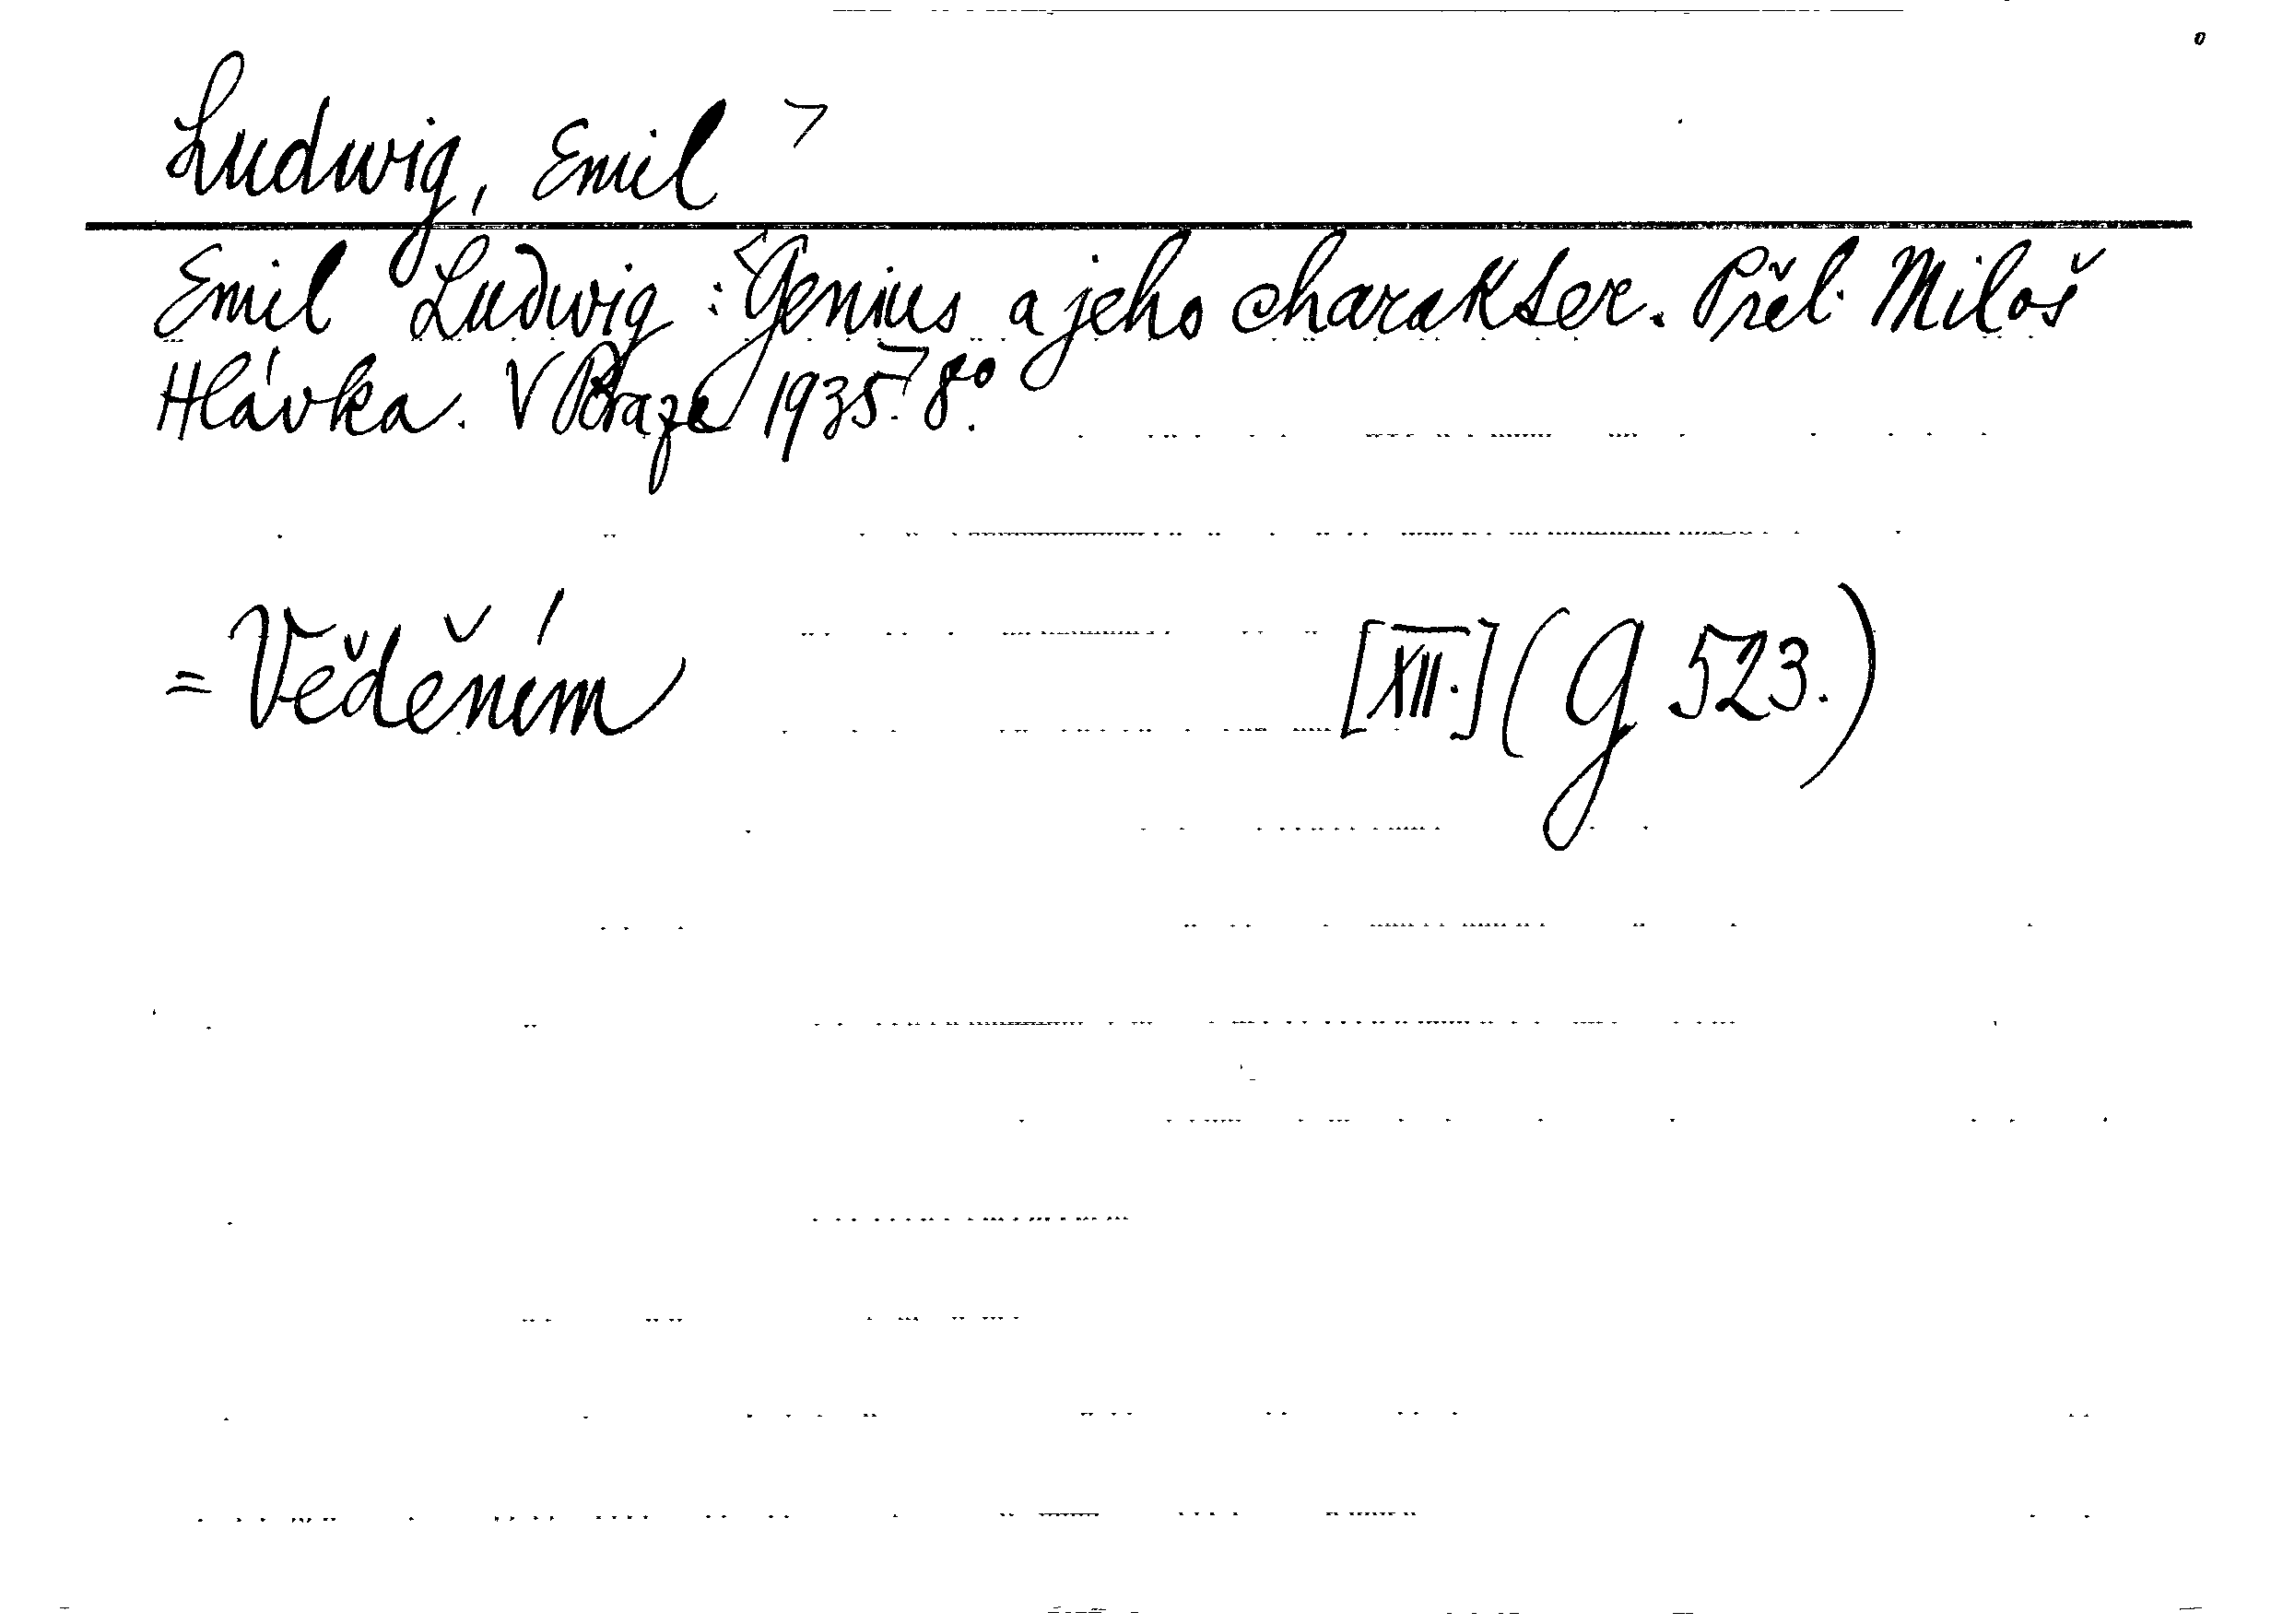 Ludwig, Emil
Emil Ludwig: Genius a jeho charakter. Přel. Miloš
Hlávka. V Praze 1935. 8º.
= Věděním [XII.] (G 523.)